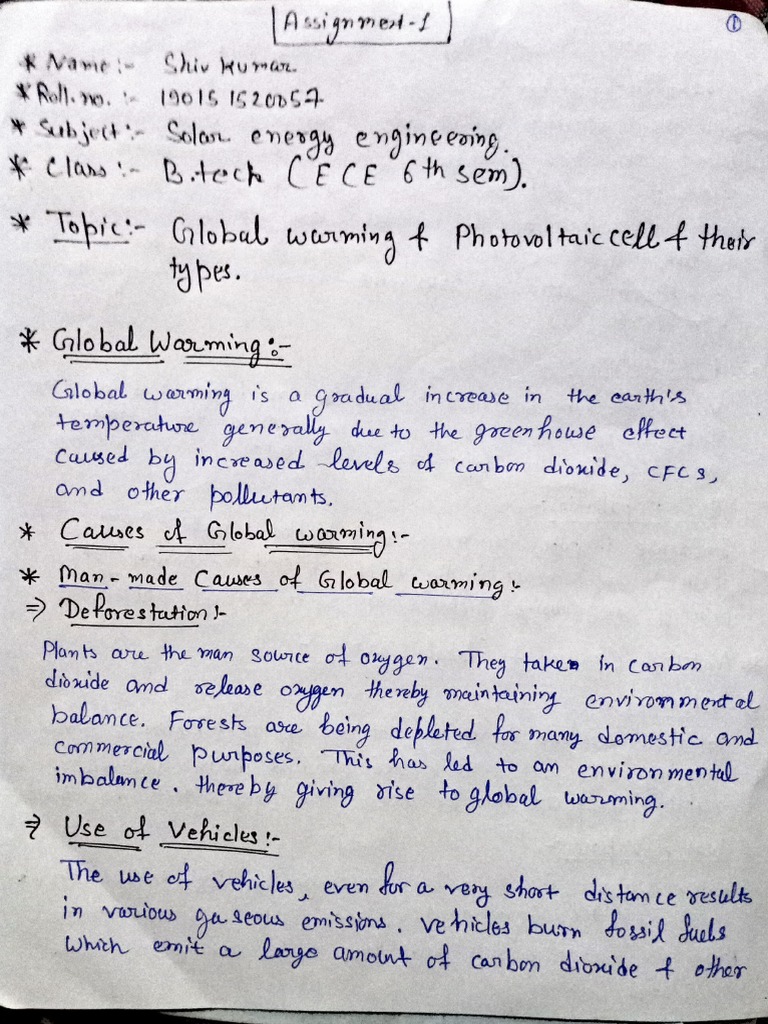 Assignment-1
①
* Name:- Shiv Kumar
* Roll. no. :- 190151520057
* Subject:- Solar energy engineering.
* Class:- B.tech (ECE 6th sem).
* Topic:- Global warming & Photovoltaic cell & their
types.
* Global Warming:-
Global warming is a gradual increase in the earth's
temperature generally due to the greenhouse effect
caused by increased levels of carbon dioxide, CFCs,
and other pollutants.
* Causes of Global warming:-
* Man-made Causes of Global warming:-
⇒ Deforestation:-
Plants are the man source of oxygen. They take in carbon
dioxide and release oxygen thereby maintaining environmental
balance. Forests are being depleted for many domestic and
commercial purposes. This has led to an environmental
imbalance. thereby giving rise to global warming.
⇒ Use of Vehicles:-
The use of vehicles, even for a very short distance results
in various gaseous emissions. Vehicles burn fossil fuels
which emit a large amount of carbon dioxide & other